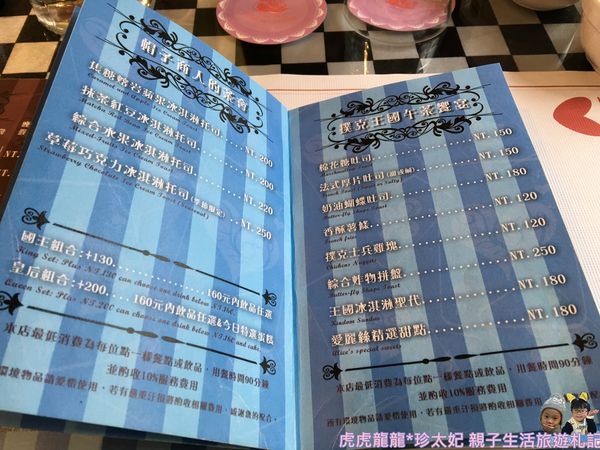 帽子商人的茶會
焦糖蜂岩蘋果冰淇淋托司....NT. 200
Caramelized Apple Ice Cream Toast
抹茶紅豆冰淇淋托司....NT. 200
Matcha Red Bean Ice Cream Toast
綜合水果冰淇淋托司....NT. 220
Mixed-Fruits Ice Cream Toast
草莓巧克力冰淇淋托司(季節限定)....NT. 250
Strawberry Chocolate Ice Cream Toast (Seasonal)
國王組合:+130..........160元內飲品任選
King Set: Plus NT.130 can choose one drink below NT.160
皇后組合:+200....160元內飲品任選&今日特選蛋糕
Queen Set: Plus NT.200 can choose one drink below NT.160 and cake
本店最低消費為每位點一樣餐點或飲品,用餐時間90分鐘
並酌收10%服務費用
環境物品請愛惜使用,若有嚴重汙損將酌收相關費用,感謝您的配合。
撲克王國午茶饗宴
棉花糖吐司....NT. 150
法式厚片吐司(甜或鹹)....NT. 150
奶油蝴蝶吐司....NT. 120
Butter-fly Shape Toast
香酥薯條....NT. 120
French fries
撲克士兵雞塊....NT. 120
Chickens Nuggets
綜合炸物拼盤....NT. 250
Butter-fly Shape Toast
王國冰淇淋聖代....NT. 180
Kindom Sundae
愛麗絲精選甜點....NT. 180
Alice's special sweets
本店最低消費為每位點一樣餐點或飲品,用餐時間90分鐘
並酌收10%服務費用
所有環境物品請愛惜使用,若有嚴重汙損將酌收相關費用
虎虎龍龍*珍太妃 親子生活旅遊札記